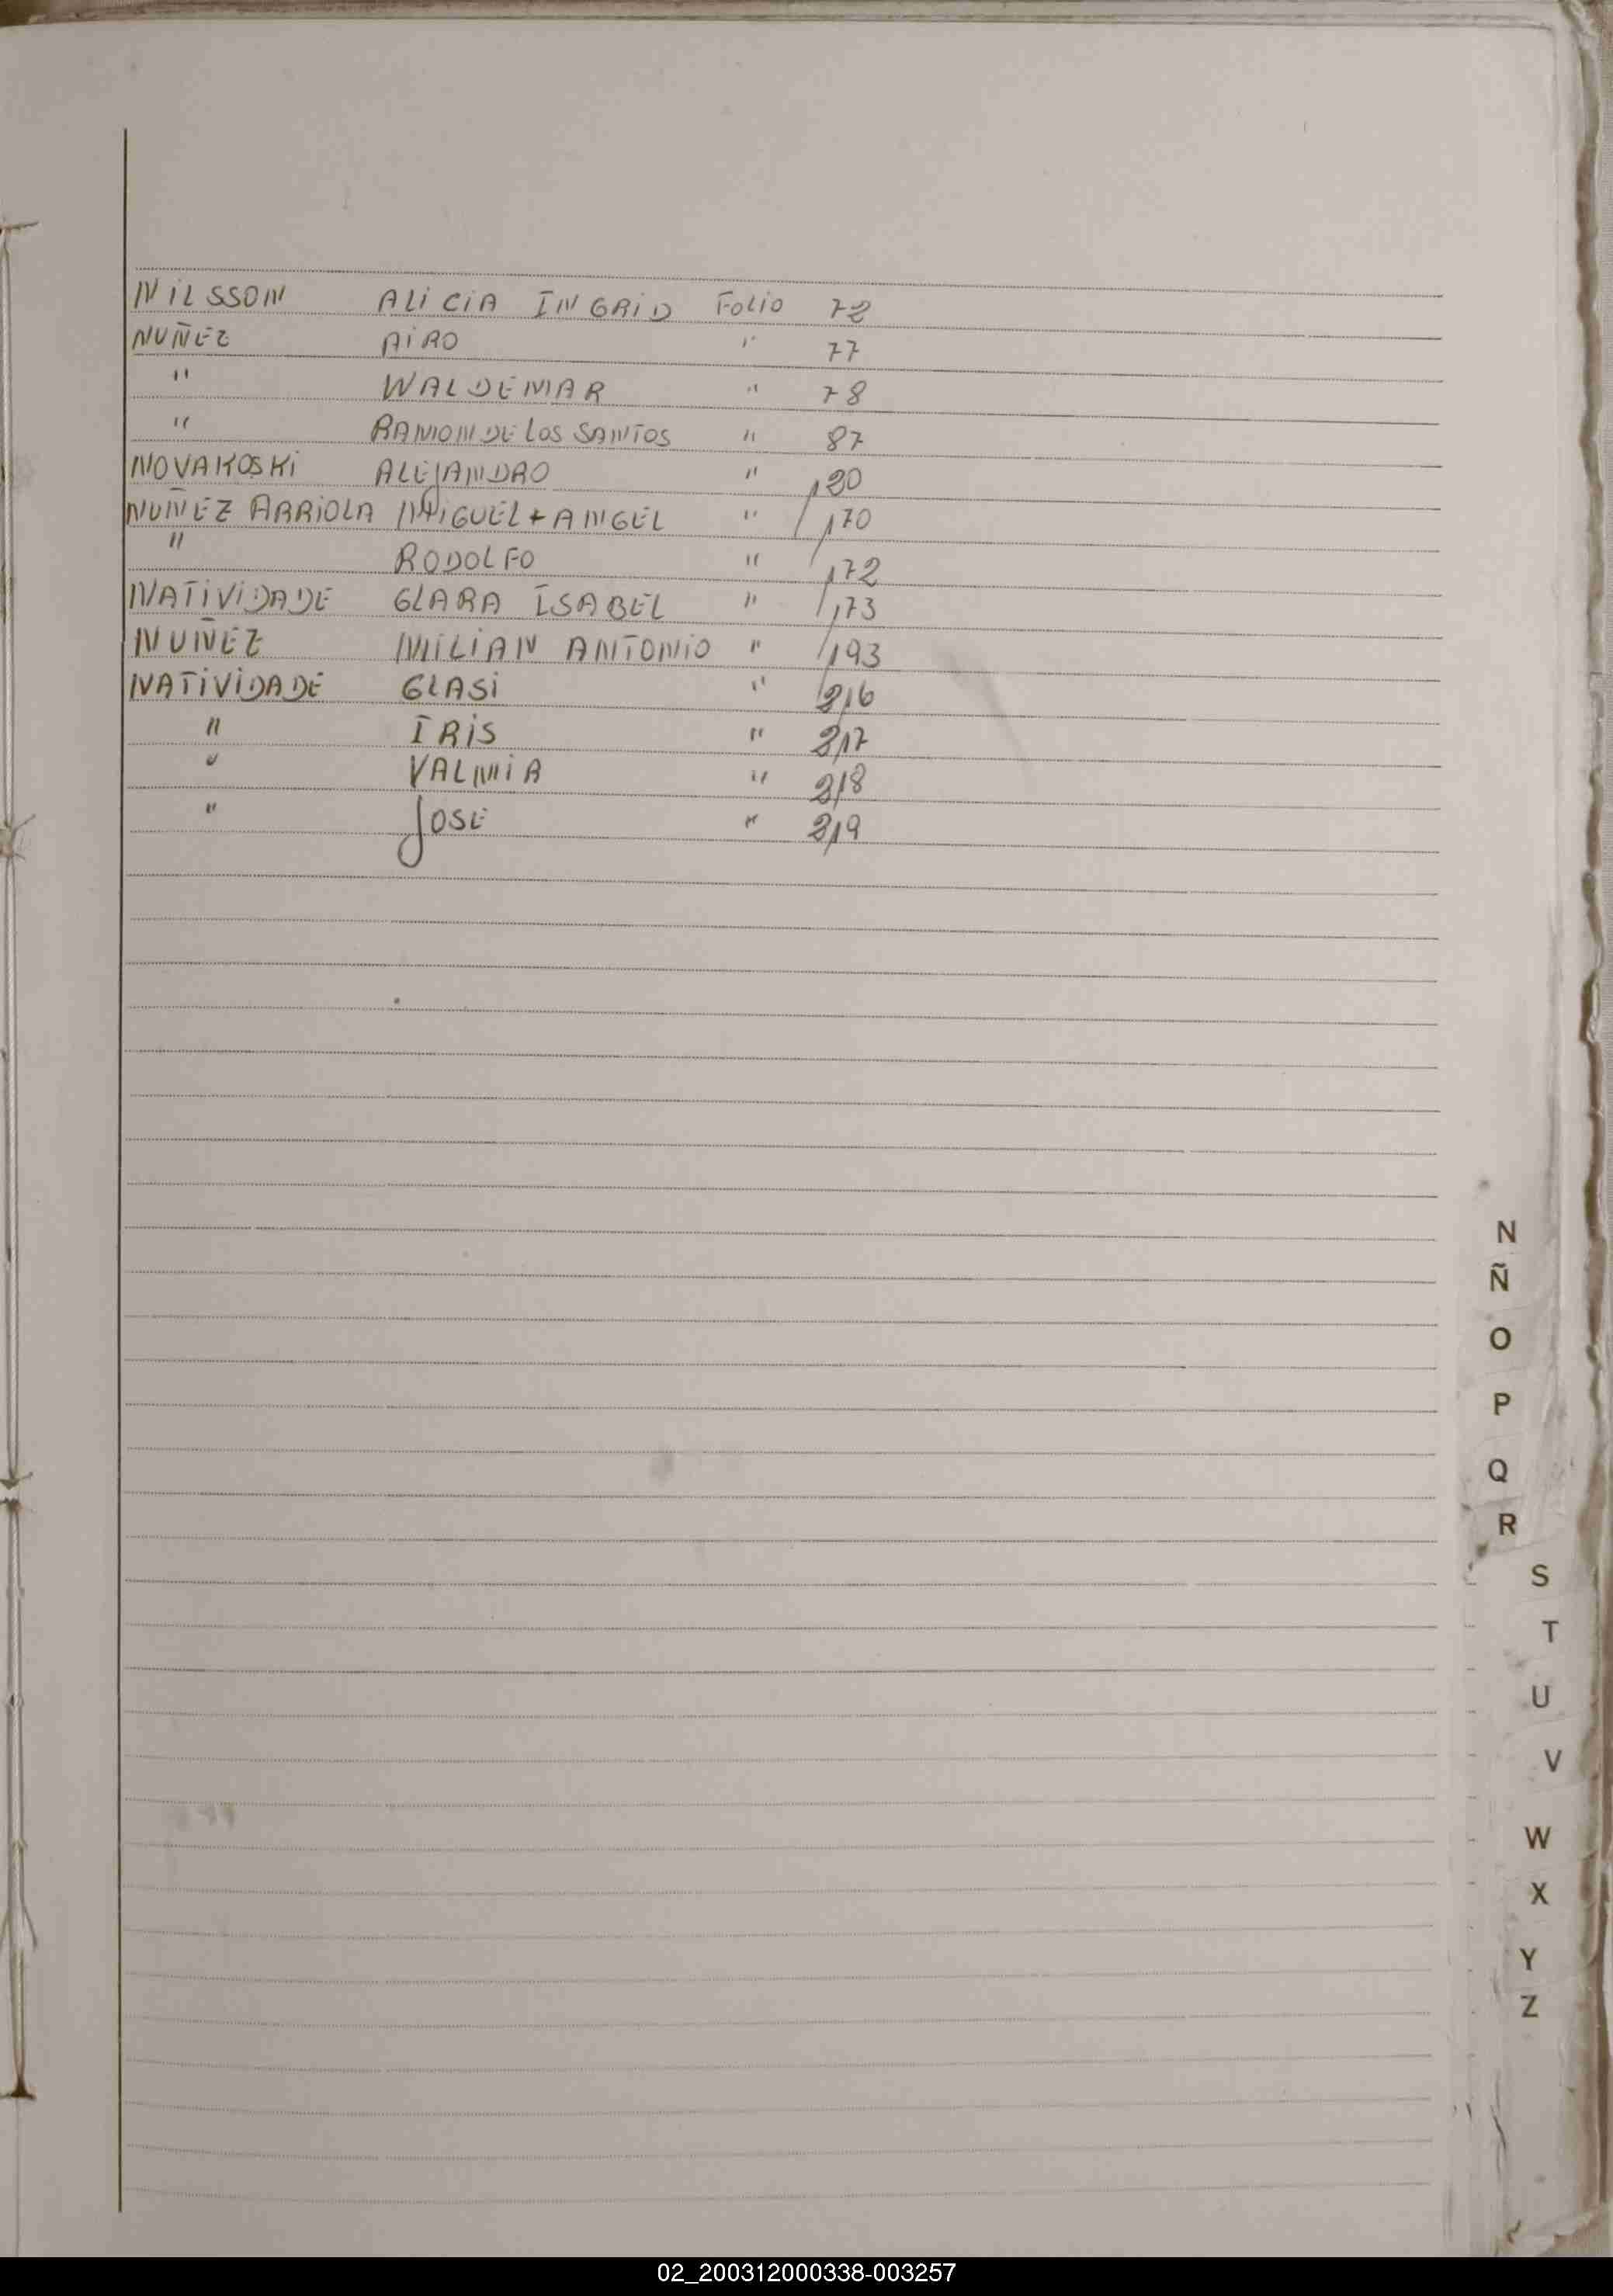 NILSSON ALICIA INGRID Folio 72
NUÑEZ AIRO " 77
" WALDEMAR " 78
" RAMON DE LOS SANTOS " 87
NOVAKOSKI ALEJANDRO " 120
NUÑEZ ARRIOLA MIGUEL + ANGEL " 170
" RODOLFO " 172
NATIVIDADE CLARA ISABEL " 173
NUÑEZ MILIAN ANTONIO " 193
NATIVIDADE GLASI " 216
" IRIS " 217
" VALMIR " 218
" JOSE " 219
N
Ñ
O
P
Q
R
S
T
U
V
W
X
Y
Z
02_200312000338-003257